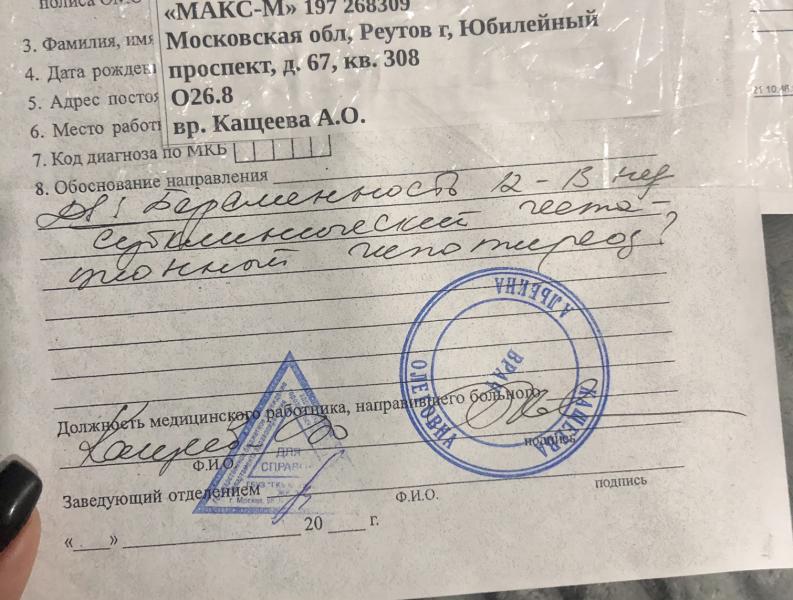 полиса ОМС
«МАКС-М» 197 268309
3. Фамилия, имя
Московская обл, Реутов г, Юбилейный
4. Дата рожден
проспект, д. 67, кв. 308
5. Адрес постоя
O26.8
6. Место работ
вр. Кащеева А.О.
7. Код диагноза по МКБ
8. Обоснование направления
Ds: Беременность 12 - 13 нед
Субклинический геста-
ционный гипотиреоз?
АЛЬБИНА
ОЛЕГОВНА
КАЩЕЕВА
ВРАЧ
Должность медицинского работника, направившего больного
Кащеева
подпись
Ф.И.О.
ДЛЯ
СПРАВ
г. Москва
Заведующий отделением
Ф.И.О.
подпись
«___» 20 ___ г.